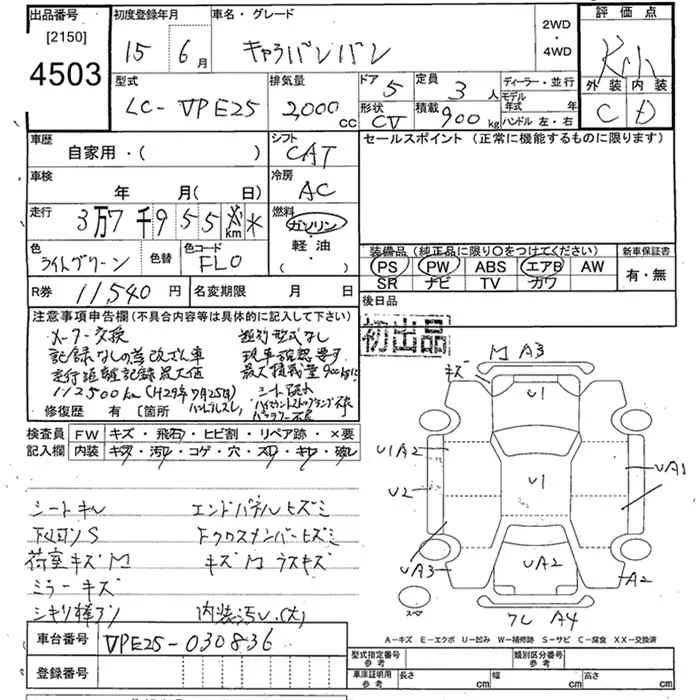 出品番号
[2150]
4503
初度登録年月
15 6月
車名・グレード
キャラバンバン
2WD
・
4WD
評価点
外装 内装
C D
型式
LC-VPE25
排気量
2,000 CC
ドア 5
形状 CV
定員 3人
積載 900kg
ディーラー・並行
モデル年式 年
ハンドル 左・右
車歴
自家用・( )
シフト
CAT
セールスポイント (正常に機能するものに限ります)
車検
年 月( 日)
冷房
AC
走行
3万7千955km *
燃料
ガソリン
軽油・
( )
色
ライトグリーン
色替
色コード
FL0
装備品 (純正品に限り○をつけてください)
PS PW ABS エアB AW
SR ナビ TV カワ
新車保証書
有・無
R券 11,540円
名変期限 月 日
後日品
初出品
注意事項申告欄(不具合内容等は具体的に記入して下さい)
メーター交換
記録なしの為改ざん車
走行距離記録最大値
112,500km (H29年7月25日)
修復歴 有 [箇所
類別形式なし
現車確認要す
最大積載量900kg
シート破れ
検査員記入欄
FW キズ・飛石・ヒビ割・リペア跡・×要
内装 キズ・汚れ・コゲ・穴・スレ・キレ・破れ
シートキレ
エンドパネルヒズミ
下回りS
Fクロスメンバーヒズミ
荷室キズM
キズM ラスキズ
ミラーキズ
内装汚レ(大)
キズ M A3
U1
UA1
U1A2
U1
U2
UA3
UA2
A2
スペア
フレ A4
A-キズ E-エクボ U-凹み W-補修跡 S-サビ C-腐食 XX-交換済
車台番号 VPE25-030836
登録番号
型式指定番号
参考
類別区分番号
参考
車庫証明用
参考
長さ cm 幅 cm 高さ cm